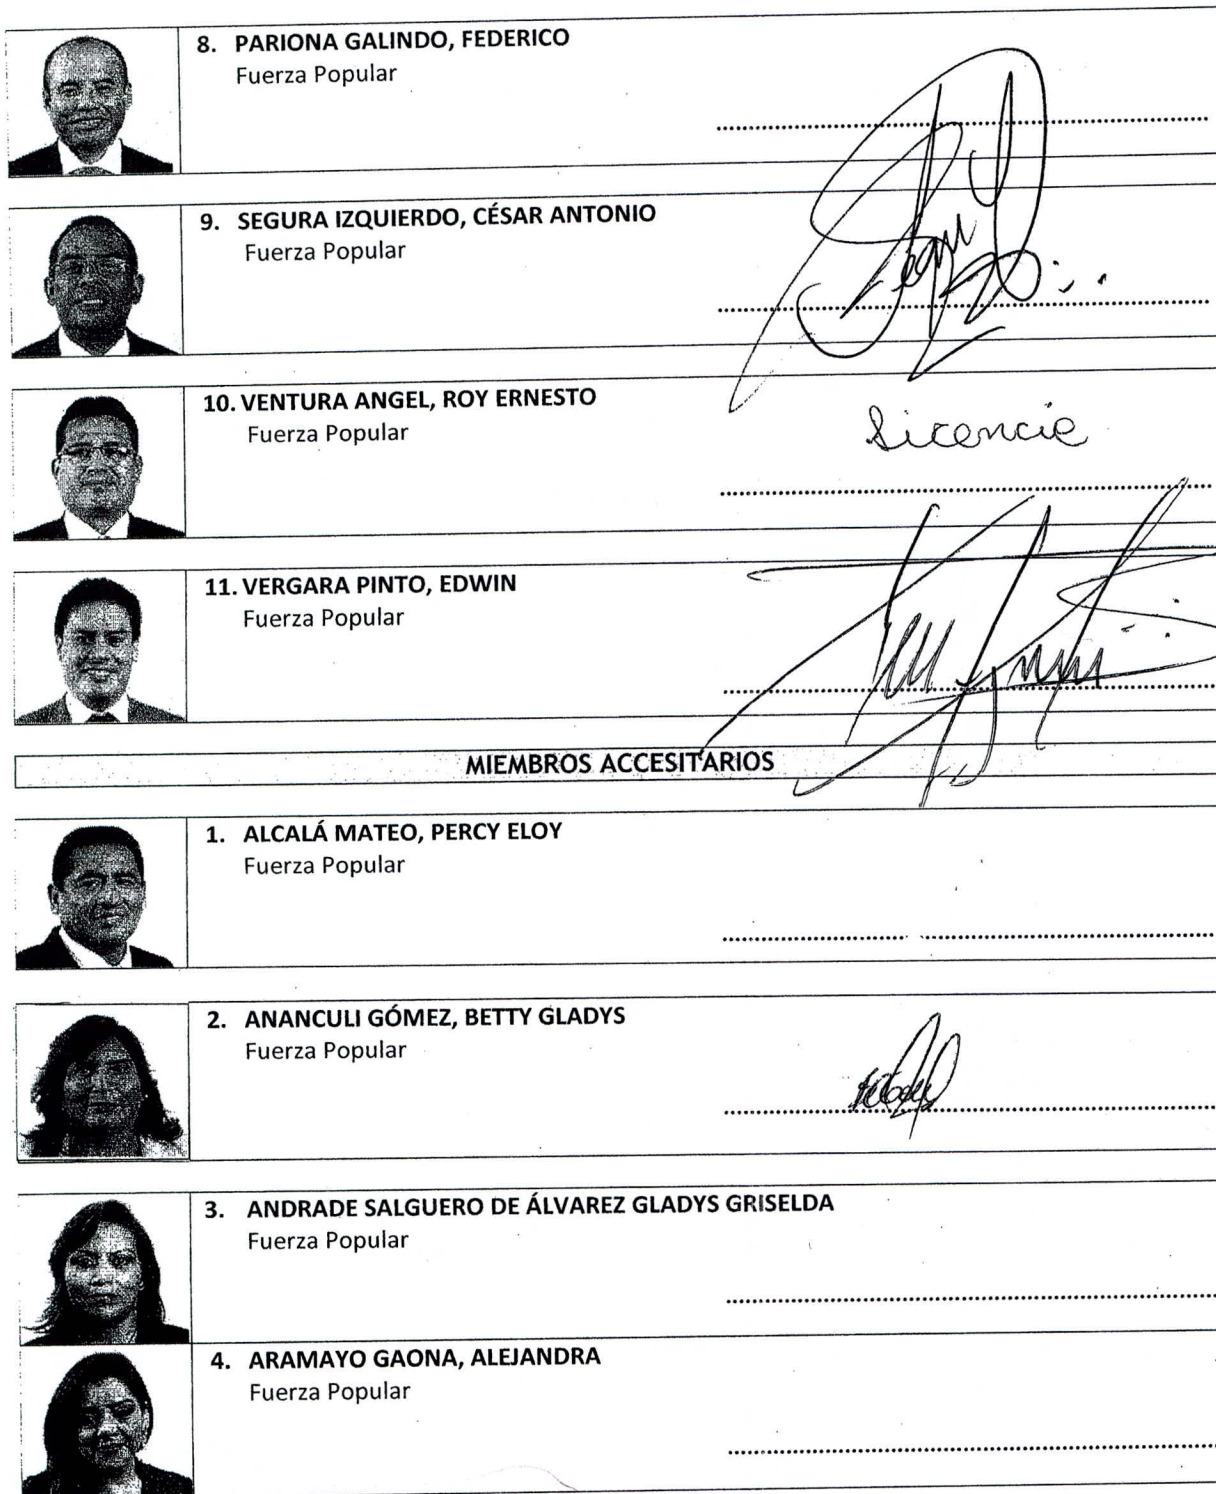 8. PARIONA GALINDO, FEDERICO
Fuerza Popular
9. SEGURA IZQUIERDO, CÉSAR ANTONIO
Fuerza Popular
10. VENTURA ANGEL, ROY ERNESTO
Fuerza Popular
Licencia
11. VERGARA PINTO, EDWIN
Fuerza Popular
MIEMBROS ACCESITARIOS
1. ALCALÁ MATEO, PERCY ELOY
Fuerza Popular
2. ANANCULI GÓMEZ, BETTY GLADYS
Fuerza Popular
3. ANDRADE SALGUERO DE ÁLVAREZ GLADYS GRISELDA
Fuerza Popular
4. ARAMAYO GAONA, ALEJANDRA
Fuerza Popular